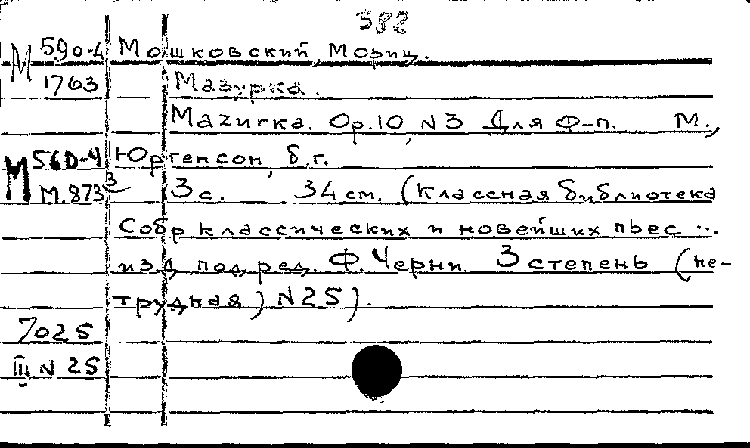 382
М 590-4 Мошковский, Мориц.
1763 Мазурка.
Mazurka. Op.10, N3 Для Ф-п. М.,
М 560-4 Юргенсон, б.г.
М.873 3 3 с. 34 см. (Классная библиотека
Собр классических и новейших пьес ...
изд под ред. Ф. Черни 3 степень (не-
трудная) N25).
7025
III N 25